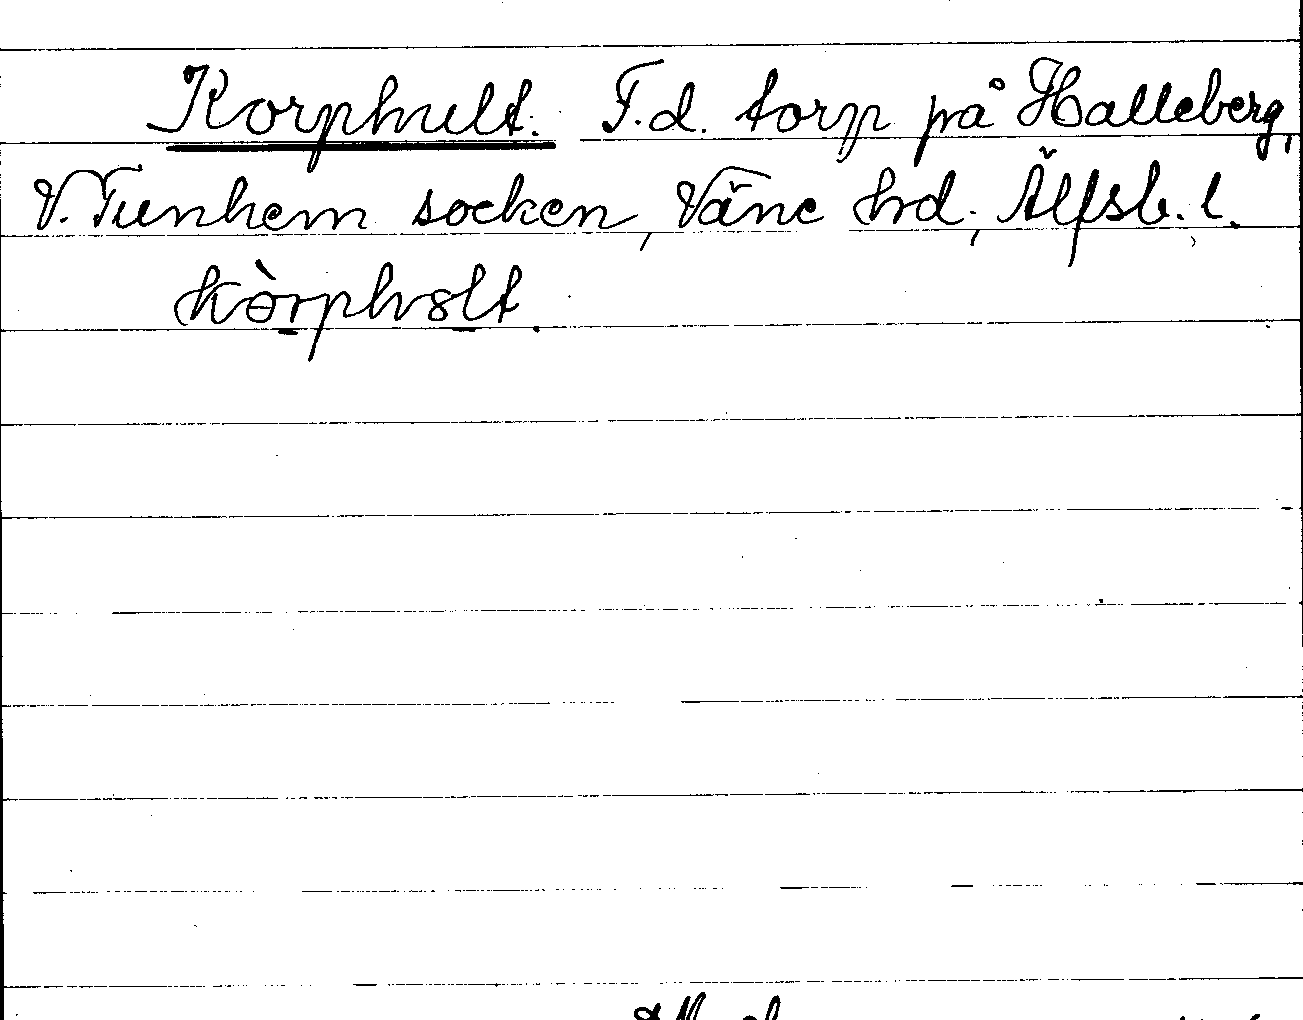 Korphult. F.d. torp på Halleberg,
V. Tunhem socken, Väne hrd, Älfsb. l.
kòrphult.